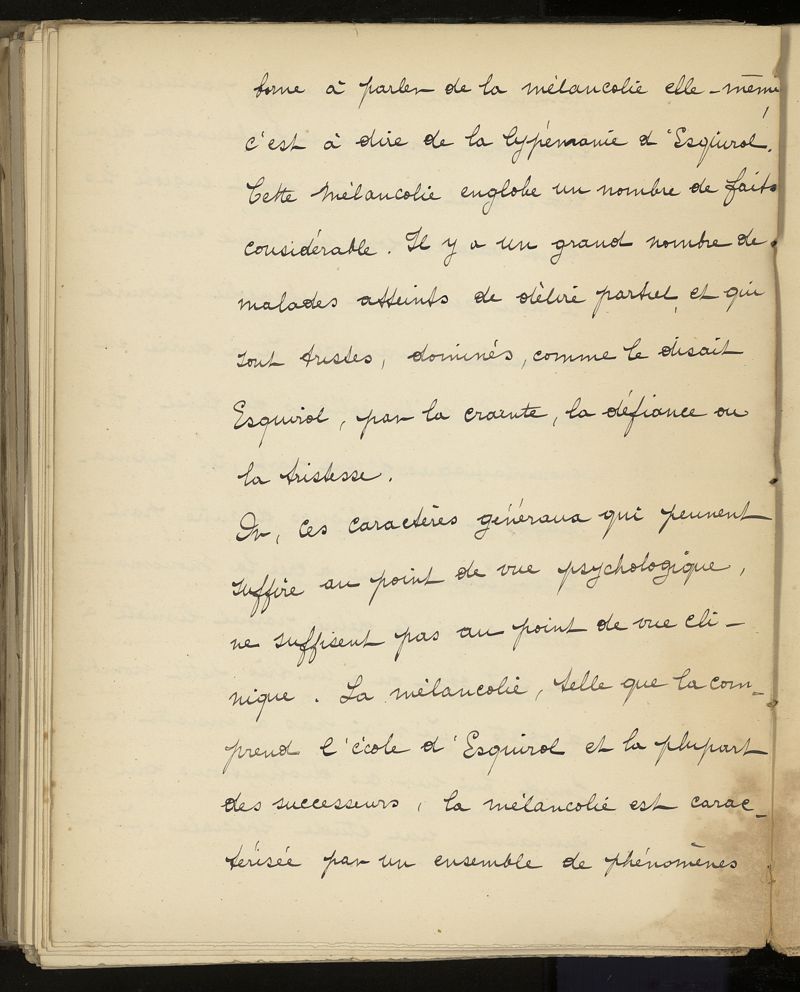 borne à parler de la mélancolie elle-même,
c'est à dire de la lypémanie d'Esquirol.
Cette Mélancolie englobe un nombre de faits
considérable. Il y a un grand nombre de
malades atteints de délire partiel, et qui
sont tristes, dominés, comme le disait
Esquirol, par la crainte, la défiance ou
la tristesse.
Or, ces caractères généraux qui peuvent
suffire au point de vue psychologique,
ne suffisent pas au point de vue cli-
nique. La mélancolie, telle que la com-
prend l'école d'Esquirol et la plupart
des successeurs, la mélancolie est carac-
térisée par un ensemble de phénomènes